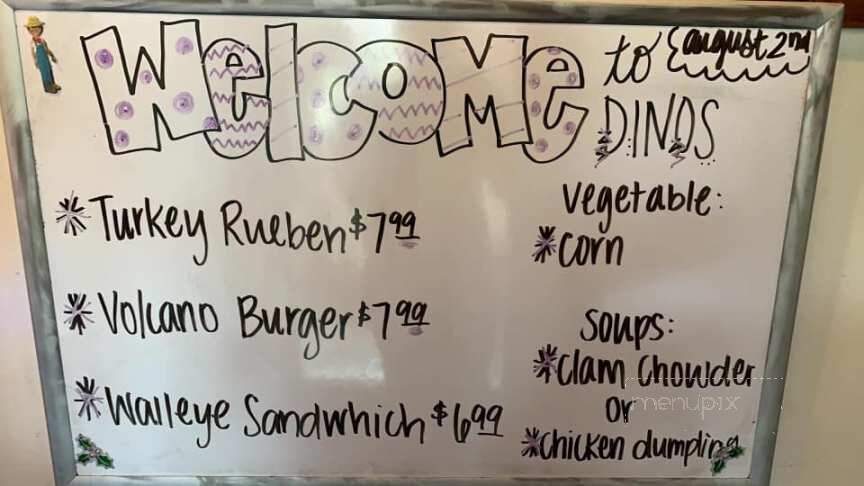 Welcome to august 2nd
DINOS
* Turkey Rueben $7.99
* Volcano Burger $7.99
* Walleye Sandwhich $6.99
Vegetable:
* corn
Soups:
* Clam Chowder
or
* chicken dumpling
menupix